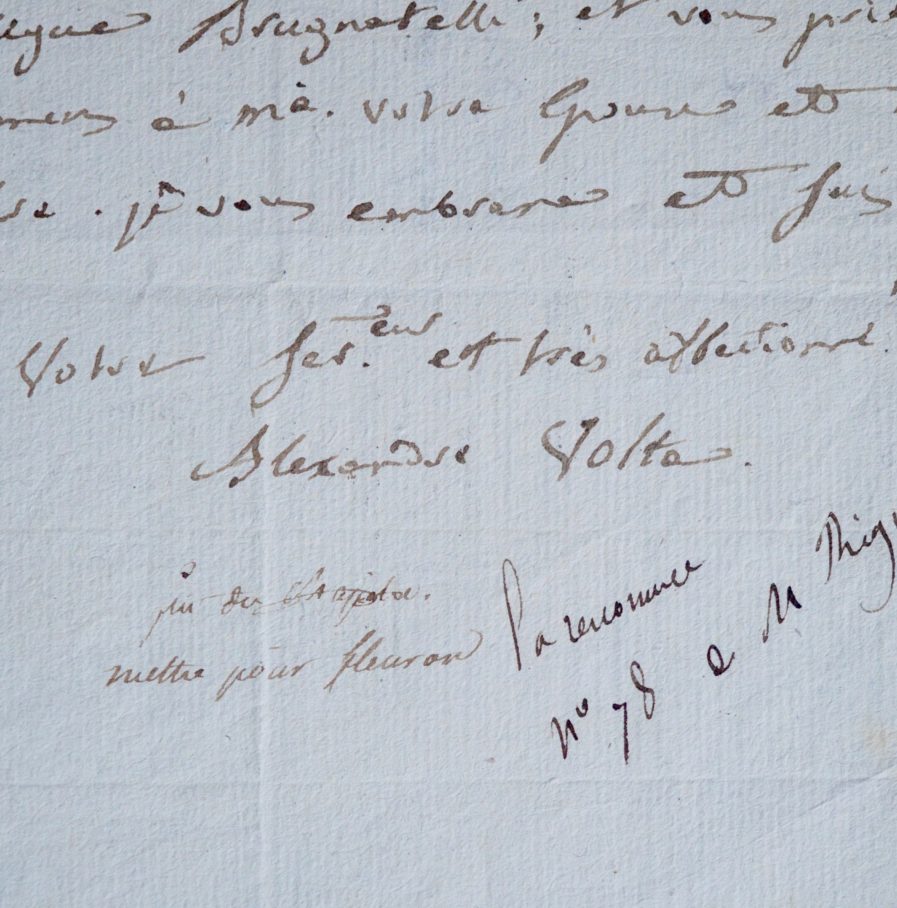 Brugnatelli; et vous prie
à Mᵃ. votre Epouse et
. je vous embrasse et suis
Votre serᵉᵘʳ et très affectionné.
Alexandre Volta.
fin du Chapitre.
mettre pour fleuron
la renommée
nº 78 a M